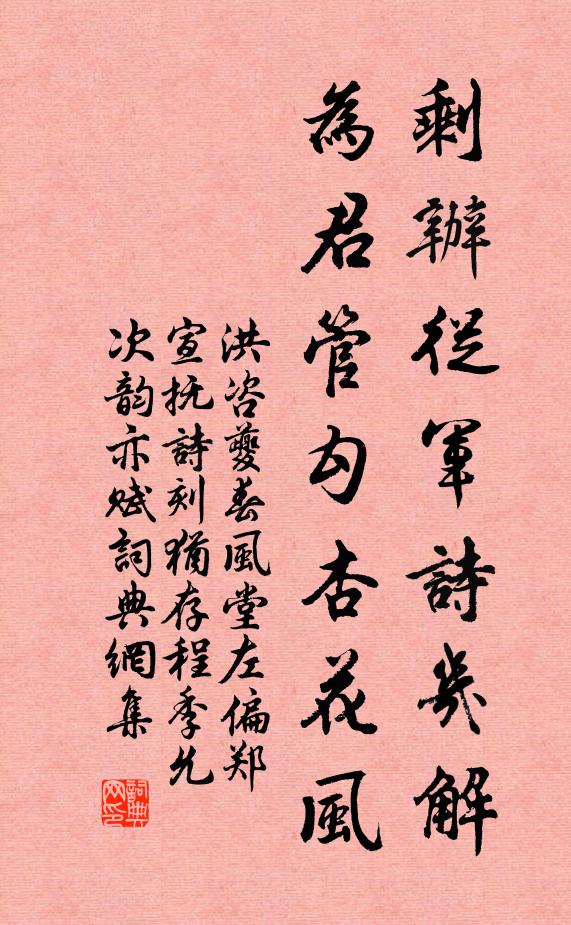 剩辦從軍詩幾解
為君管勾杏花風
洪咨夔春風堂左偏郑
宣抚詩刻猶存程季允
次韵亦赋詞典網集
詞典网印